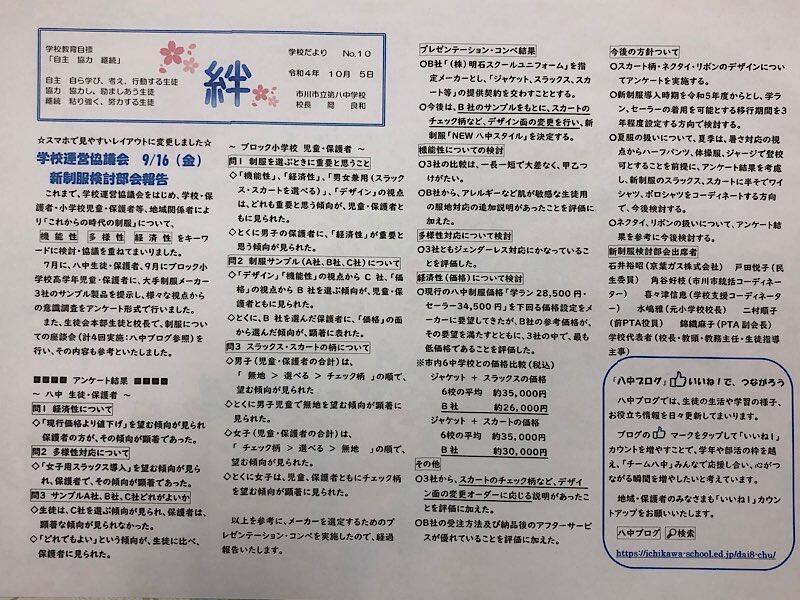 学校教育目標
「自主 協力 継続」
自主 自ら学び、考え、行動する生徒
協力 協力し、励ましあう生徒
継続 粘り強く、努力する生徒
絆
学校だより No.10
令和4年 10月 5日
市川市立第八中学校
校長 岡 良和
☆スマホで見やすいレイアウトに変更しました☆
学校運営協議会 9/16(金)
新制服検討部会報告
これまで、学校運営協議会をはじめ、学校・保
護者・小学校児童・保護者等、地域関係者によ
り「これからの時代の制服」について、
機能性 多様性 経済性 をキーワ
ードに検討・協議を重ねてまいりました。
7月に、八中生徒・保護者、9月にブロック小
学校高学年児童・保護者に、大手制服メーカー
3社のサンプル製品を提示し、様々な視点から
の意識調査をアンケート形式で行いました。
また、生徒会本部生徒と校長で、制服につい
ての座談会(計4回実施:八中ブログ参照)を
行い、その内容も参考といたしました。
■■■■ アンケート結果 ■■■■
~ 八中 生徒・保護者 ~
問1 経済性について
◇「現行価格より値下げ」を望む傾向が見られ
保護者の方が、その傾向が顕著であった。
問2 多様性対応について
◇「女子用スラックス導入」を望む傾向が見ら
れ、保護者で、その傾向が顕著であった。
問3 サンプルA社、B社、C社どれがよいか
◇生徒は、C社を選ぶ傾向が見られ、保護者は、
顕著な傾向が見られなかった。
◇「どれでもよい」という傾向が、生徒に比べ、
保護者に見られた。
~ ブロック小学校 児童・保護者 ~
問1 制服を選ぶときに重要と思うこと
◇「機能性」、「経済性」、「男女兼用(スラック
ス・スカートを選べる)」、「デザイン」の視点
は、どれも重要と思う傾向が、児童・保護者と
もに見られた。
◇とくに男子の保護者に、「経済性」が重要と思
う傾向が見られた。
問2 制服サンプル(A社、B社、C社)について
◇「デザイン」「機能性」の視点から C 社、「価
格」の視点から B 社を選ぶ傾向が、児童・保
護者ともに見られた。
◇とくに、B 社を選んだ保護者に、「価格」の面
から選んだ傾向が、顕著に表れた。
問3 スラックス・スカートの柄について
◇男子(児童・保護者の合計)は、
「 無地 > 選べる > チェック柄 」の順で、
望む傾向が見られた。
◇とくに男子児童で無地を望む傾向が顕著に
見られた。
◇女子(児童・保護者の合計)は、
「 チェック柄 > 選べる > 無地 」の順で、
望む傾向が見られた。
◇とくに女子は、児童、保護者ともにチェック柄
を望む傾向が顕著に見られた。
以上を参考に、メーカーを選定するためのプ
レゼンテーション・コンペを実施したので、経過
報告いたします。
プレゼンテーション・コンペ結果
○B社「(株)明石スクールユニフォーム」を指
定メーカーとし、「ジャケット、スラックス、スカ
ート等」の提供契約を交わすこととする。
○今後は、B 社のサンプルをもとに、スカートの
チェック柄など、デザイン面の変更を行い、新
制服「NEW 八中スタイル」を決定する。
機能性についての検討
○3社の比較は、一長一短で大差なく、甲乙つ
けがたい。
○B社から、アレルギーなど肌が敏感な生徒用
の服地対応の追加説明があったことを評価に
加えた。
多様性対応について検討
○3社ともジェンダーレス対応にかなっているこ
とを評価した。
経済性(価格)について検討
○現行の八中制服価格「学ラン 28,500円・
セーラー34,500円」を下回る価格設定をメ
ーカーに要望してきたが、B社の参考価格が、
その要望を満たすとともに、3社の中で、最も
低価格であることを評価した。
※市内6中学校との価格比較(税込)
ジャケット + スラックスの価格
6校の平均 約35,000円
B 社 約26,000円
ジャケット + スカートの価格
6校の平均 約35,000円
B 社 約30,000円
その他
○3社から、スカートのチェック柄など、デザイ
ン面の変更オーダーに応じる説明があったこ
とを評価に加えた。
○B社の受注方法及び納品後のアフターサービ
スが優れていることを評価に加えた。
今後の方針ついて
○スカート柄・ネクタイ・リボンのデザインについ
てアンケートを実施する。
○新制服導入時期を令和5年度からとし、学ラ
ン、セーラーの着用を可能とする移行期間を3
年程度設定する方向で検討する。
○夏服の扱いについて、夏季は、暑さ対応の視
点からハーフパンツ、体操服、ジャージで登校
可とすることを前提に、アンケート結果を考慮
し、新制服のスラックス、スカートに半そでワイ
シャツ、ポロシャツをコーディネートする方向
で、今後検討する。
○ネクタイ、リボンの扱いについて、アンケート結
果を参考に今後検討する。
新制服検討部会出席者
石井裕昭(京葉ガス株式会社) 戸田悦子(民
生委員) 角谷好枝(市川市統括コーディネー
ター) 喜々津信恵(学校支援コーディネータ
ー) 水嶋雅(元小学校校長) 二村順子
(前PTA役員) 錦織麻子(PTA副会長)
学校代表者(校長・教頭・教務主任・生徒指導
主事)
「八中ブログ」いいね!で、つながろう
八中ブログでは、生徒の生活や学習の様子、
お役立ち情報を日々更新してまいります。
ブログの マークをタップして「いいね!」
カウントを増やすことで、学年や部活の枠を越
え、「チーム八中」みんなで応援し合い、心がつ
ながる瞬間を増やしたいと考えています。
地域・保護者のみなさまも「いいね!」カウン
トアップをお願いいたします。
八中ブログ 検索
https://ichikawa-school.ed.jp/dai8-chu/